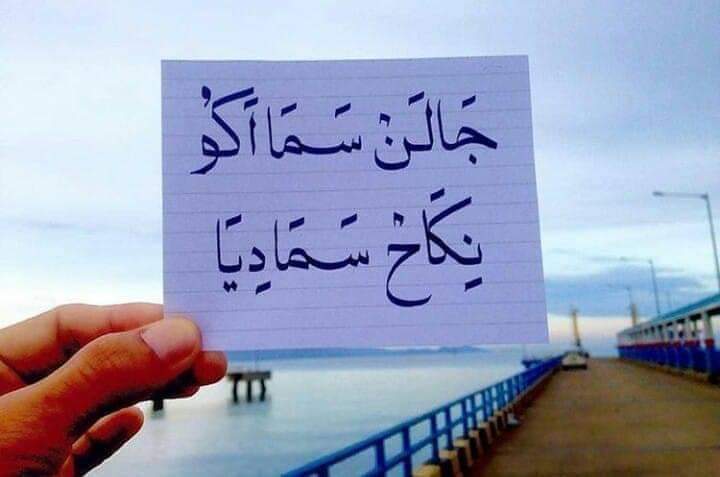 جَالَنْ سَمَا اَكُو
نِكَاحْ سَمَا دِيَا